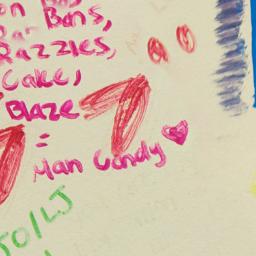 on
Bons,
Razzles,
Cake,
Blaze
=
Man Candy ♥